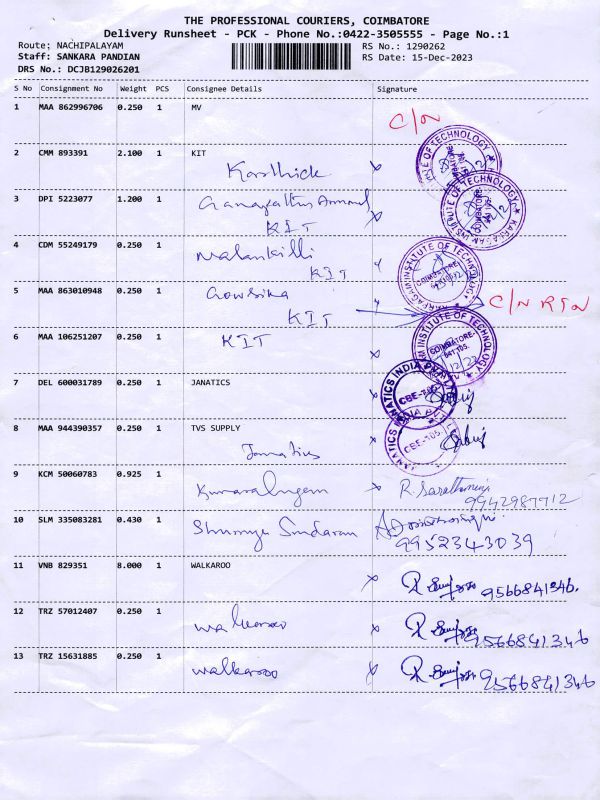 THE PROFESSIONAL COURIERS, COIMBATORE
Delivery Runsheet - PCK - Phone No.:0422-3505555 - Page No.:1
Route: NACHIPALAYAM RS No.: 1290262
Staff: SANKARA PANDIAN RS Date: 15-Dec-2023
DRS No.: DCJB129026201
S No Consignment No Weight PCS Consignee Details Signature
1 MAA 862996706 0.250 1 MV
C/N
2 CMM 893391 2.100 1 KIT
Karthick x
3 DPI 5223077 1.200 1
KIT x
4 CDM 55249179 0.250 1
KIT
5 MAA 863010948 0.250 1 Gowsika
KIT C/N RTN
6 MAA 106251207 0.250 1 KIT
x
7 DEL 600031789 0.250 1 JANATICS
x
8 MAA 944390357 0.250 1 TVS SUPPLY
Janatics x
9 KCM 50060783 0.925 1
x 9942987712
10 SLM 335083281 0.430 1
9952343039
11 VNB 829351 8.000 1 WALKAROO
x 9566841346.
12 TRZ 57012407 0.250 1
walkaroo x 9566841346
13 TRZ 15631885 0.250 1
walkaroo x 9566841346
INSTITUTE OF TECHNOLOGY
COIMBATORE